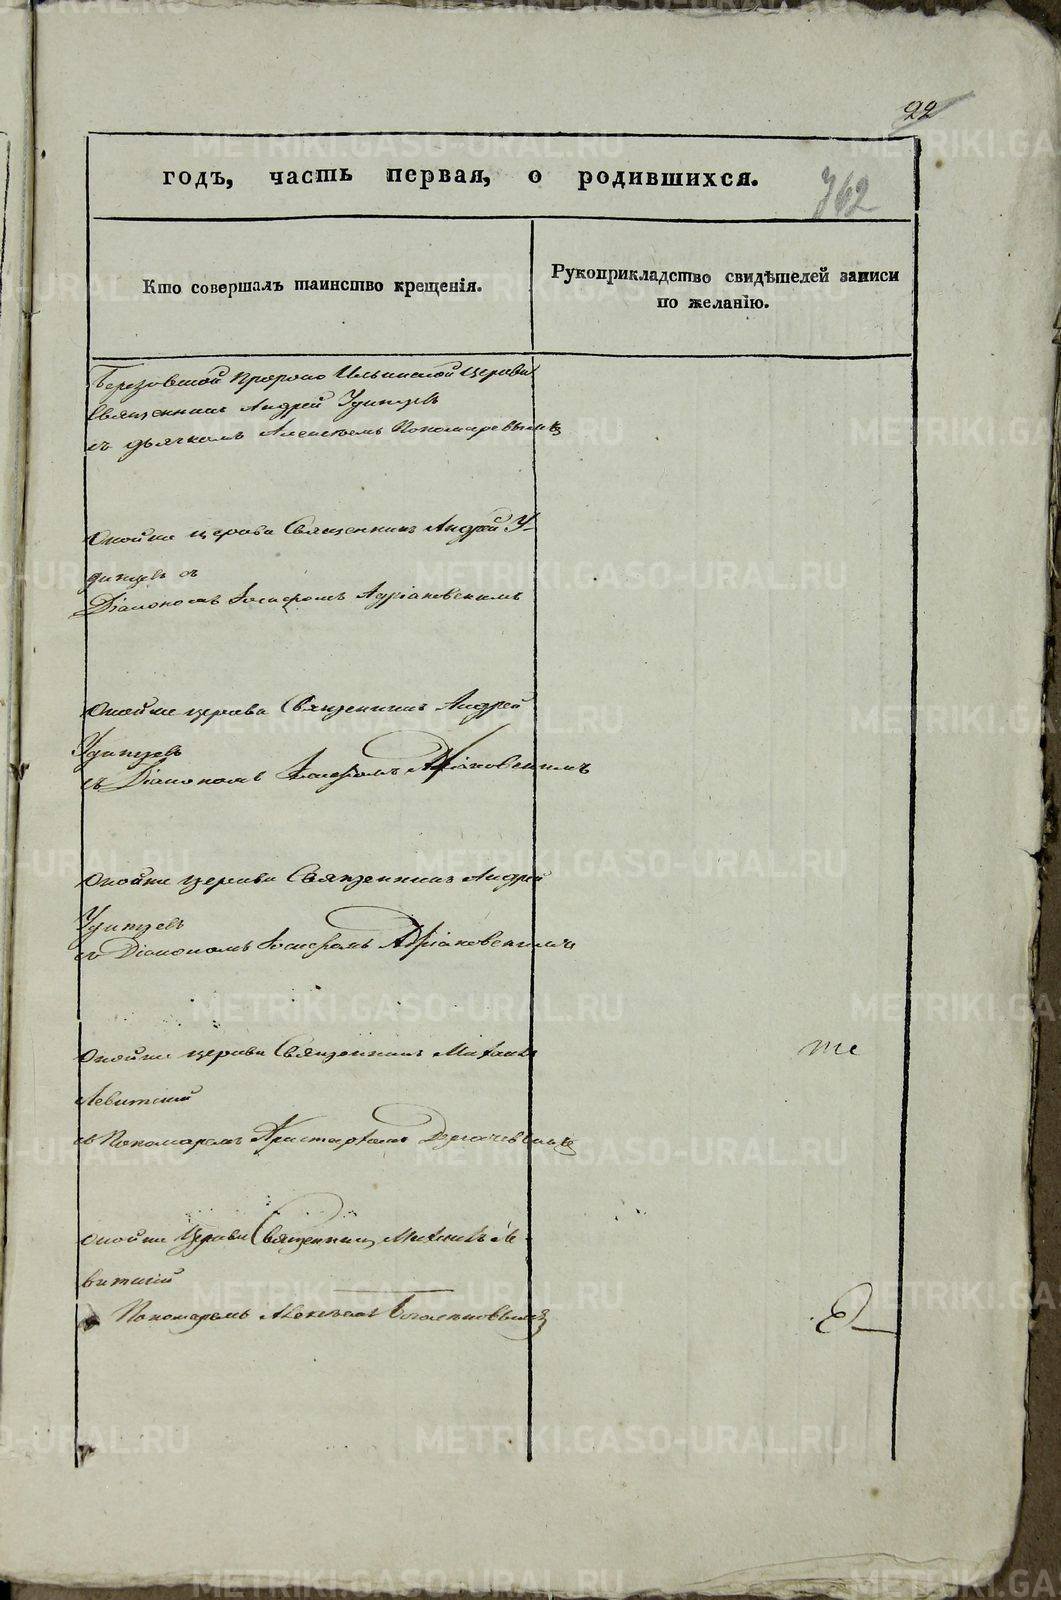 22
годъ, часть первая, о родившихся.
762
Кто совершалъ таинство крещенія.
Рукоприкладство свидѣтелей записи
по желанію.
Березовской Пророко Ильинской церкви
Священникъ Андрей Удинцевъ
съ дьячкомъ Алексѣемъ Пономаревымъ
Оной же церкви Священникъ Андрей У-
динцевъ съ
Діакономъ Іосифомъ Адріановскимъ
Оной же церкви Священникъ Андрей
Удинцевъ
съ Діакономъ Іосифомъ Адріановскимъ
Оной же церкви Священникъ Андрей
Удинцевъ
съ Діакономъ Іосифомъ Адріановскимъ
Оной же церкви Священникъ Михаилъ
те
Левитскій
съ Пономаремъ Аристархомъ
Оной же Церкви Священникъ Михаилъ Ле-
витскій
Пономаремъ
METRIKI.GASO-URAL.RU